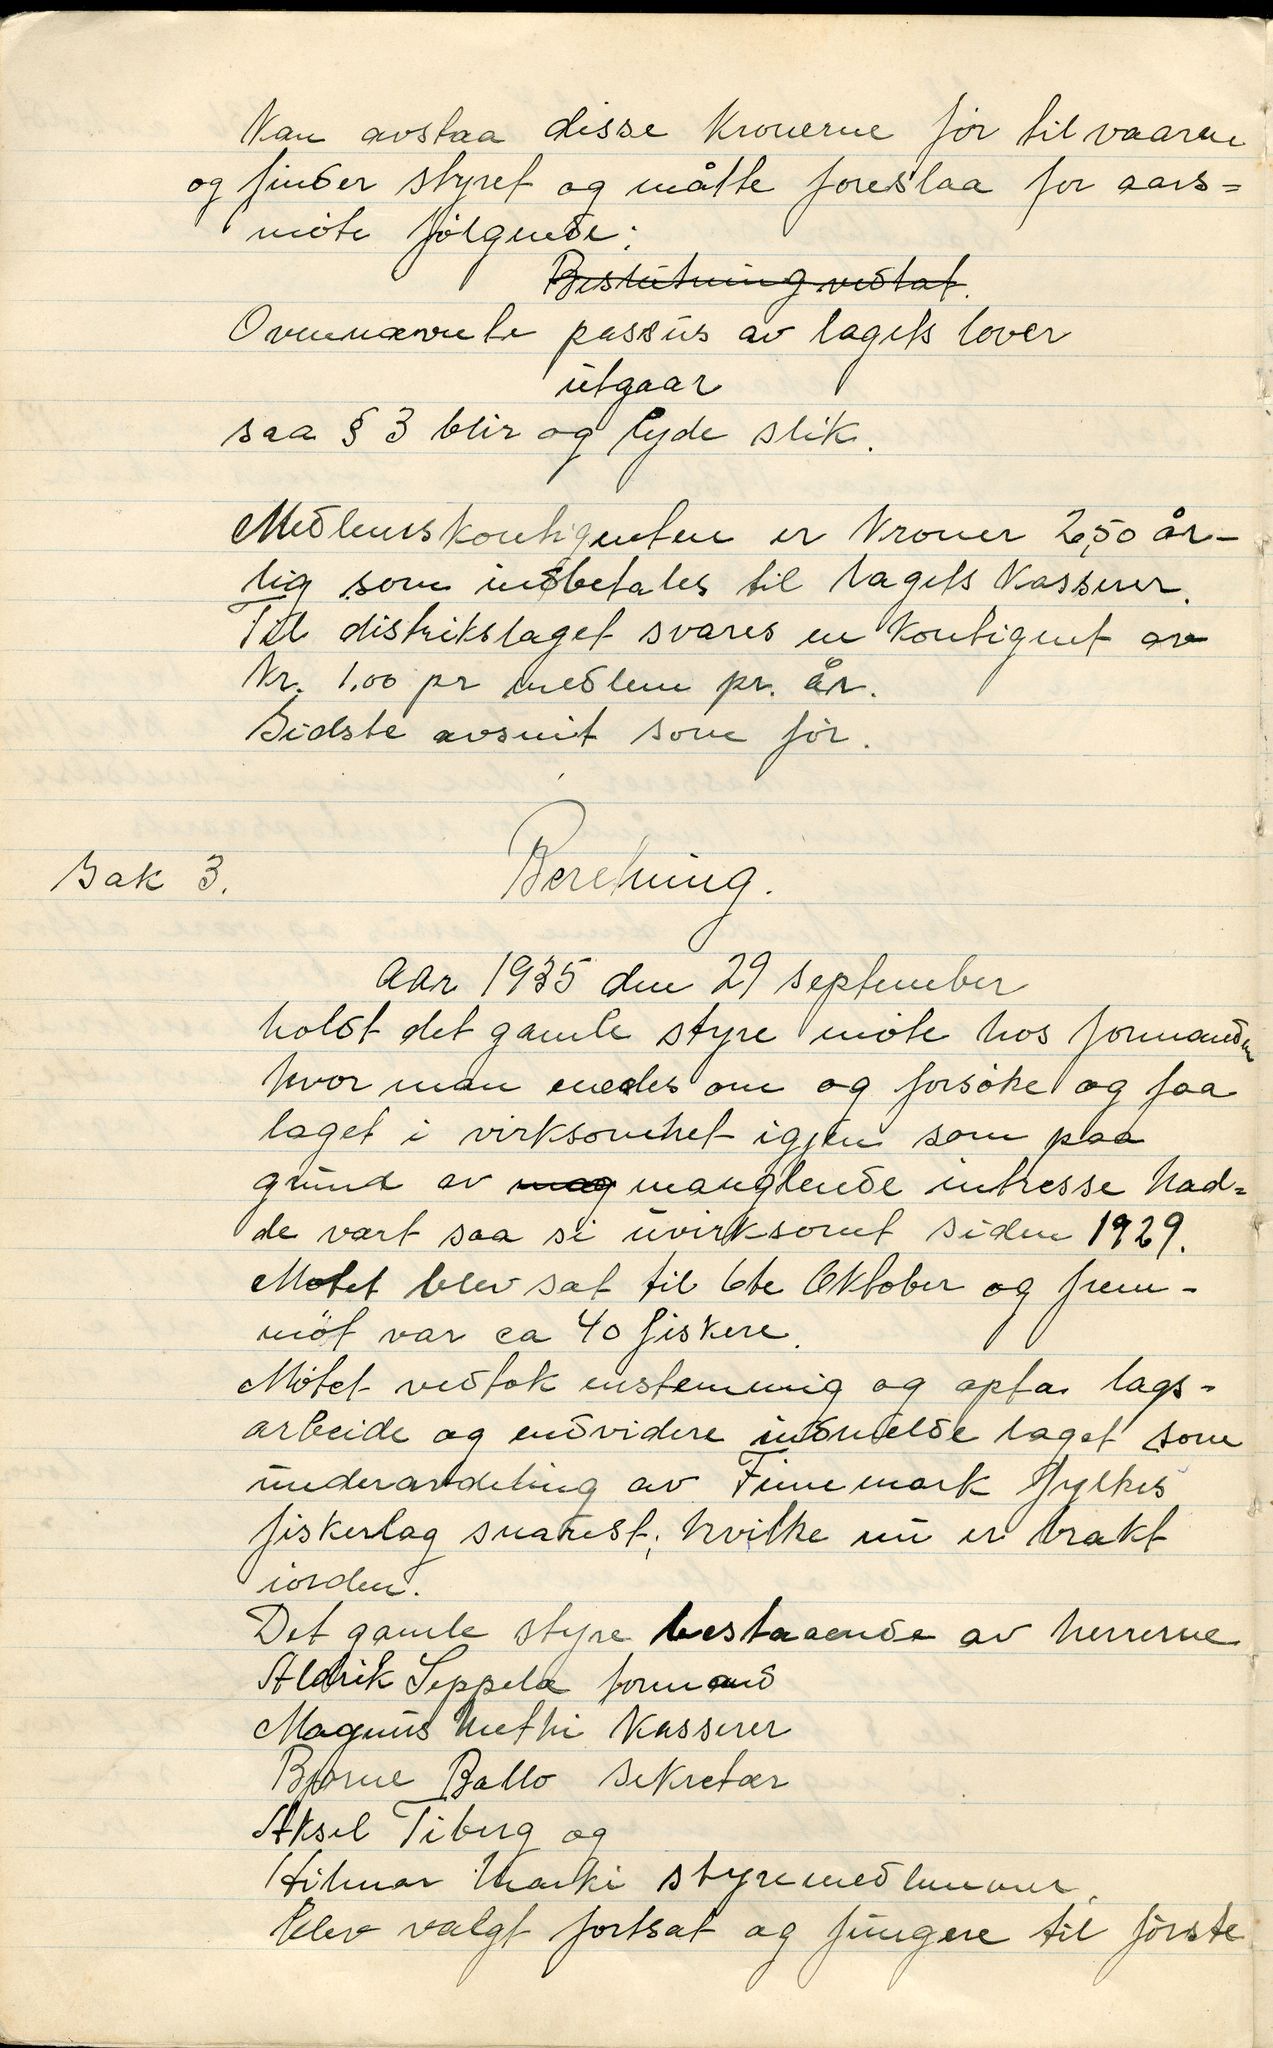 Kan avstaa disse kronerne før til vaaren
og finder styret og måtte foreslaa for aars=
møte følgende:
Beslutning vedtat.
Ovennævnte passus av lagets lover
utgaar
saa § 3 blir og lyde slik.
Medlemskontigenten er kroner 2,50 år-
lig som indbetales til lagets kasserer.
Til distrikslaget svares en kontigent av
kr. 1.00 pr medlem pr. år.
Sidste avsnit som før.
Sak 3. Beretning.
Aar 1935 den 29 september
holdt det gamle styre møte hos formanden
hvor man enedes om og forsøke og faa
laget i virksomhet igjen som paa
grund av mag manglende intresse had=
de vært saa si uvirksomt siden 1929.
Møtet blev sat til 6te Oktober og frem-
møt var ca 40 fiskere.
Møtet vedtok enstemmig og opta lags-
arbeide og endvidere indmelde laget som
underavdeling av Finnmark fylkes
fiskerlag snarest; hvilke nu er brakt
iorden.
Det gamle styre bestaaende av herrerne
Aldrik Seppelæ formand
Magnus Methi kasserer
Bjarne Ballo sekretær
Aksel Tiberg og
Hilmar styremedlemmer.
blev valgt fortsat og fungere til første